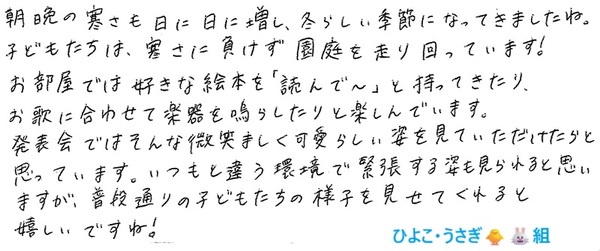 朝晩の寒さも日に日に増し、冬らしい季節になってきましたね。
子どもたちは、寒さに負けず園庭を走り回っています！
お部屋では好きな絵本を「読んで～」と持ってきたり、
お歌に合わせて楽器を鳴らしたりと楽しんでいます。
発表会ではそんな微笑ましく可愛らしい姿を見ていただけたらと
思っています。いつもと違う環境で緊張する姿も見られると思い
ますが、普段通りの子どもたちの様子を見せてくれると
嬉しいですね！
ひよこ・うさぎ🐤🐰組